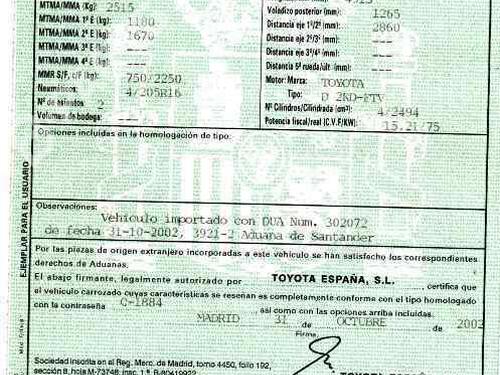 MTMA/MMA (Kg): 2515
MTMA/MMA 1º E (kg): 1180
MTMA/MMA 2º E (kg): 1670
MTMA/MMA 3º E (kg): ---
MTMA/MMA 4º E (kg): ---
MMR S/F, c/F (kg): 750/2250
Neumáticos: 4/205R16
Nº de asientos 2
Volumen de bodega: ---
Voladizo posterior (mm): 1265
Distancia eje 1º/2º (mm): 2860
Distancia eje 2º/3º (mm): ---
Distancia eje 3º/4º (mm): ---
Distancia 5ª rueda/últ. (mm): ---
Motor: Marca: TOYOTA
Tipo: D 2KD-FTV
Nº Cilindros/Cilindrada (cm³): 4/2494
Potencia fiscal/real (C.V.F/KW): 15,21/75
Opciones incluidas en la homologación de tipo:
EJEMPLAR PARA EL USUARIO
Observaciones:
Vehiculo importado con DUA Num. 302072
de fecha 31-10-2002, 3921-2 Aduana de Santander
Por las piezas de origen extranjero incorporadas a este vehículo se han satisfecho los correspondientes
derechos de Aduanas.
El abajo firmante, legalmente autorizado por TOYOTA ESPAÑA, S.L. , certifica que
el vehículo carrozado cuyas características se reseñan es completamente conforme con el tipo homologado
con la contraseña C-1884 , así como con las opciones arriba incluidas.
MADRID 31 de OCTUBRE de 2002
Firma,
Sociedad inscrita en el Reg. Merc. de Madrid, tomo 4450, folio 192,
sección 8, hoja M-73748, insc. 1ª
TOYOTA